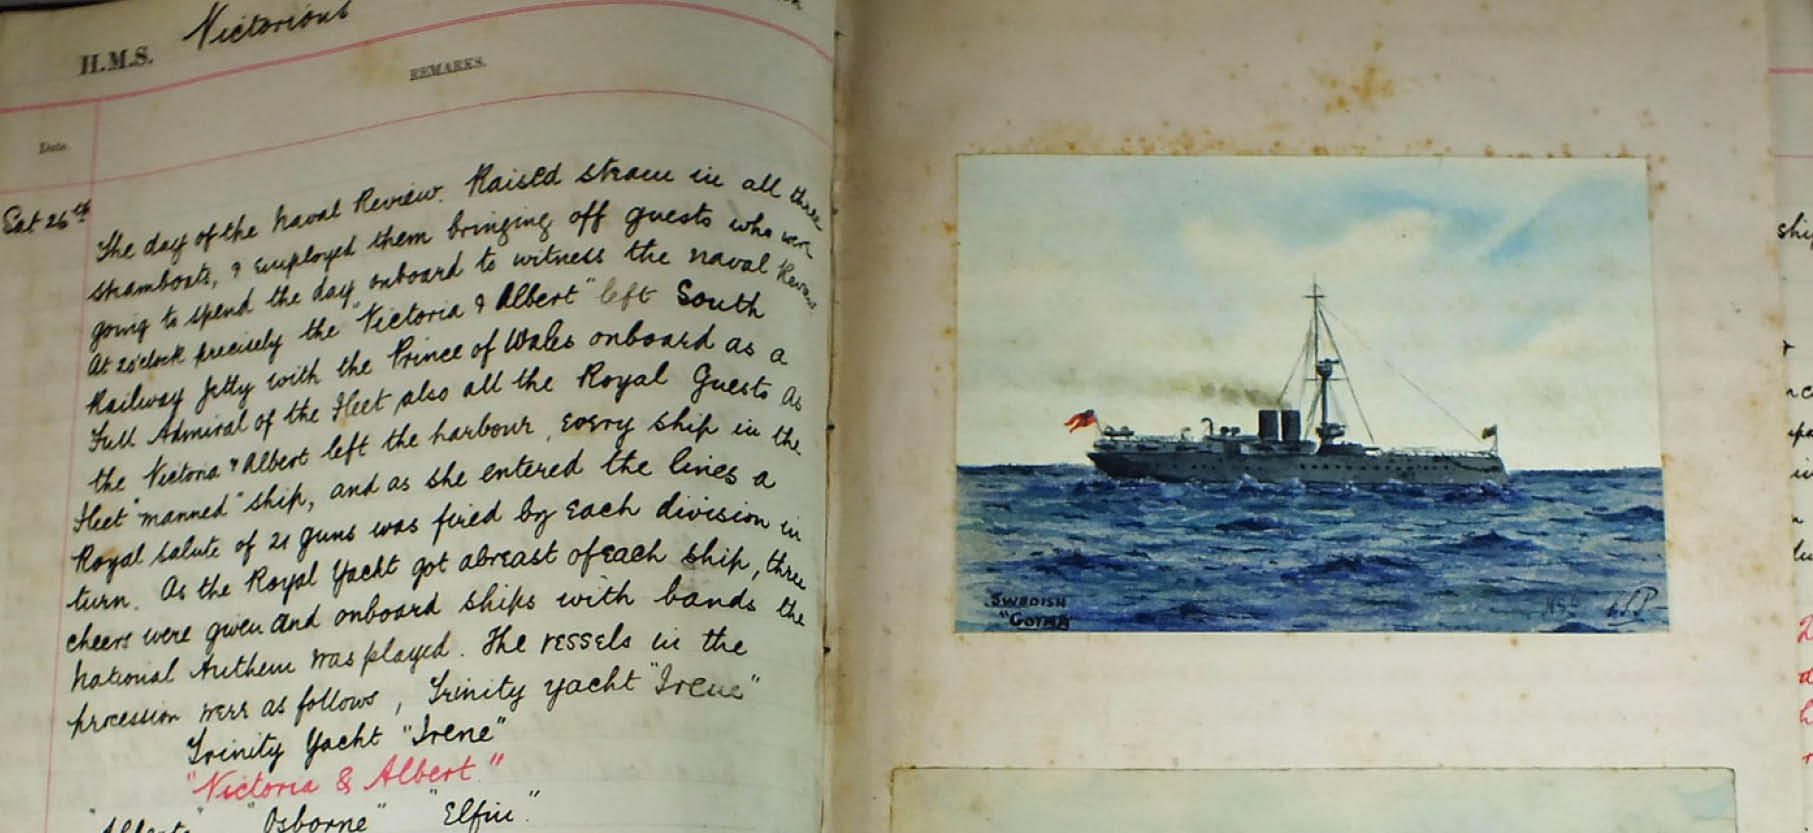 H.M.S. Victorious
REMARKS.
Date
Sat 26th
The day of the Naval Review. Raised steam in all three
steamboats, & employed them bringing off guests who were
going to spend the day onboard to witness the naval Review
At 2 o'clock precisely the "Victoria & Albert" left South
Railway Jetty with the Prince of Wales onboard as a
Full Admiral of the Fleet, also all the Royal Guests As
the Victoria & Albert left the harbour, every ship in the
Fleet "manned" ship, and as she entered the lines a
Royal salute of 21 guns was fired by each division in
turn. As the Royal Yacht got abreast of each ship, three
cheers were given and onboard ships with bands the
National Anthem was played. The vessels in the
procession were as follows, Trinity yacht "Irene"
Trinity Yacht "Irene"
"Victoria & Albert."
"Osborne" "Elfin".
SWEDISH
"GOTHA